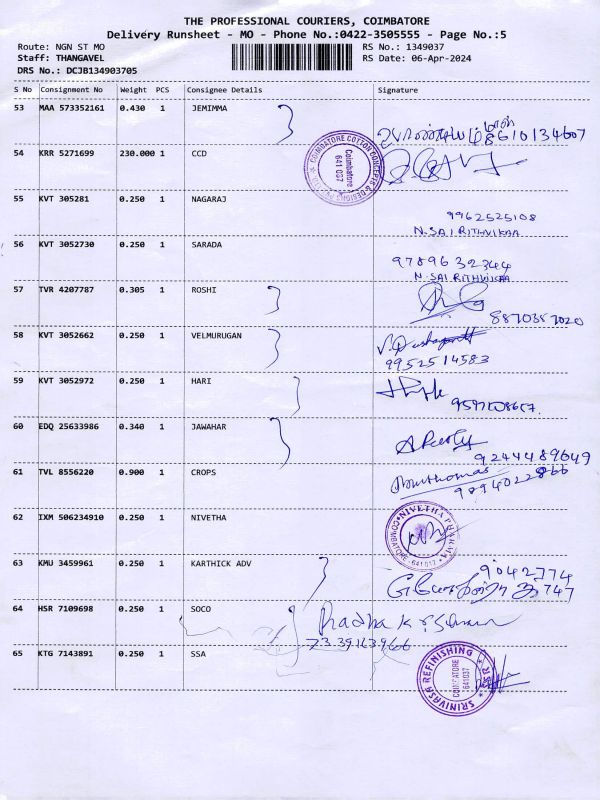 THE PROFESSIONAL COURIERS, COIMBATORE
Delivery Runsheet - MO - Phone No.:0422-3505555 - Page No.:5
Route: NGN ST MO RS No.: 1349037
Staff: THANGAVEL RS Date: 06-Apr-2024
DRS No.: DCJB134903705
S No Consignment No Weight PCS Consignee Details Signature
53 MAA 573352161 0.430 1 JEMIMMA
8610134607
54 KRR 5271699 230.000 1 CCD
COIMBATORE COTTON CONCEPTS & DESIGNS Coimbatore 641 037
55 KVT 305281 0.250 1 NAGARAJ
9962525108
N. SAI RITHVIKAA
56 KVT 3052730 0.250 1 SARADA
9789632344
N. SAI RITHVIKAA
57 TVR 4207787 0.305 1 ROSHI
8870357020
58 KVT 3052662 0.250 1 VELMURUGAN
9952514583
59 KVT 3052972 0.250 1 HARI
60 EDQ 25633986 0.340 1 JAWAHAR
9244489649
61 TVL 8556220 0.900 1 CROPS
9894022866
62 IXM 506234910 0.250 1 NIVETHA
NIVETHA PHARMA COIMBATORE
63 KMU 3459961 0.250 1 KARTHICK ADV
9042774
747
64 HSR 7109698 0.250 1 SOCO
Radha
65 KTG 7143891 0.250 1 SSA
SRINIVASA REFINISHING COIMBATORE 641037